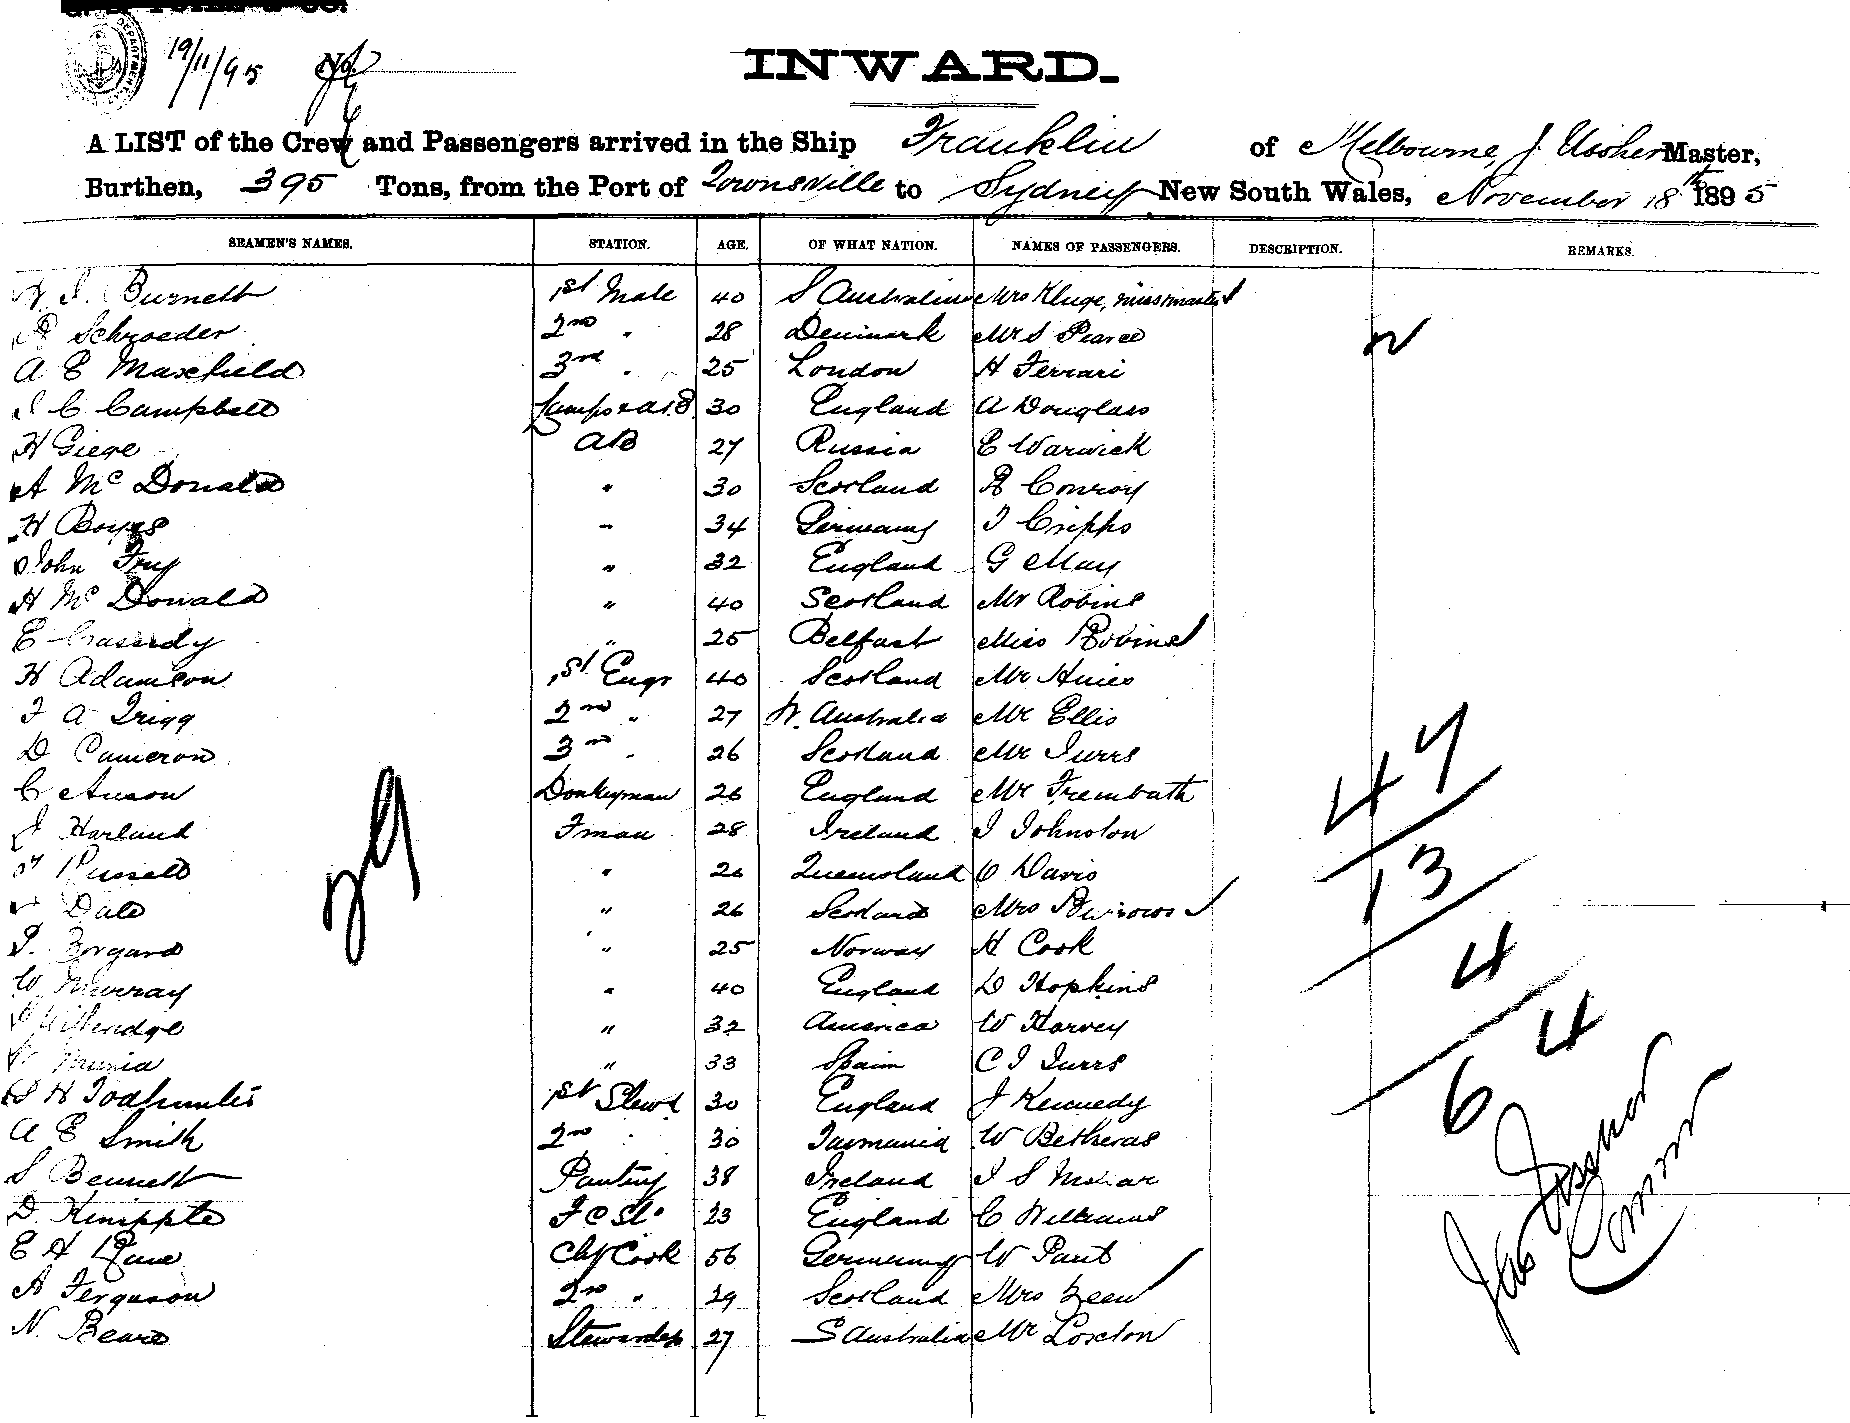 19/11/95 No.
INWARD.
A LIST of the Crew and Passengers arrived in the Ship Franklin of Melbourne, J Ussher Master,
Burthen, 395 Tons, from the Port of Townsville to Sydney New South Wales, November 18th 1895
SEAMEN'S NAMES. STATION. AGE. OF WHAT NATION. NAMES OF PASSENGERS. DESCRIPTION. REMARKS.
Burnett 1st Mate 40 S Australia Mrs Kluge, miss
Schroeder 2nd " 28 Denmark Mr S Pearce
A E Maxfield 3rd " 25 London H Ferrari
C Campbell Lamps & A.B 30 England A Douglass
H Giege AB 27 Russia E Warwick
A McDonald " 30 Scotland R Conroy
H Boyes " 34 Germany T Cripps
John Fry " 32 England G May
H McDonald " 40 Scotland Mr Robins
E Cassidy " 25 Belfast Miss Robins
H Adamson 1st Engr 40 Scotland Mr Hines
F A Trigg 2nd " 27 W. Australia Mr Ellis
D Cameron 3rd " 26 Scotland Mr Jurrs
C Anson Donkeyman 26 England Mr Trembath
J Harland Fman 28 Ireland J Johnston
Russell " 26 Queensland C Davis
Date " 26 Scotland Mrs Burrows
Borgard " 25 Norway H Cook
W Murray " 40 England D Hopkins
" 32 America W Harvey
" 33 Spain C J Jurrs
H Todhunter 1st Stewd 30 England J Kennedy
A E Smith 2nd " 30 Tasmania W Betheras
S Bennett Pantry 38 Ireland J S
D. Knipple F C St. 23 England C Williams
E H Chf Cook 56 Germany W Pant
A Ferguson 2nd " 29 Scotland Mrs Keen
N. Beare Stewardess 27 S Australia Mr Loxton
29
47
13
4
4
6
Jas Ussher